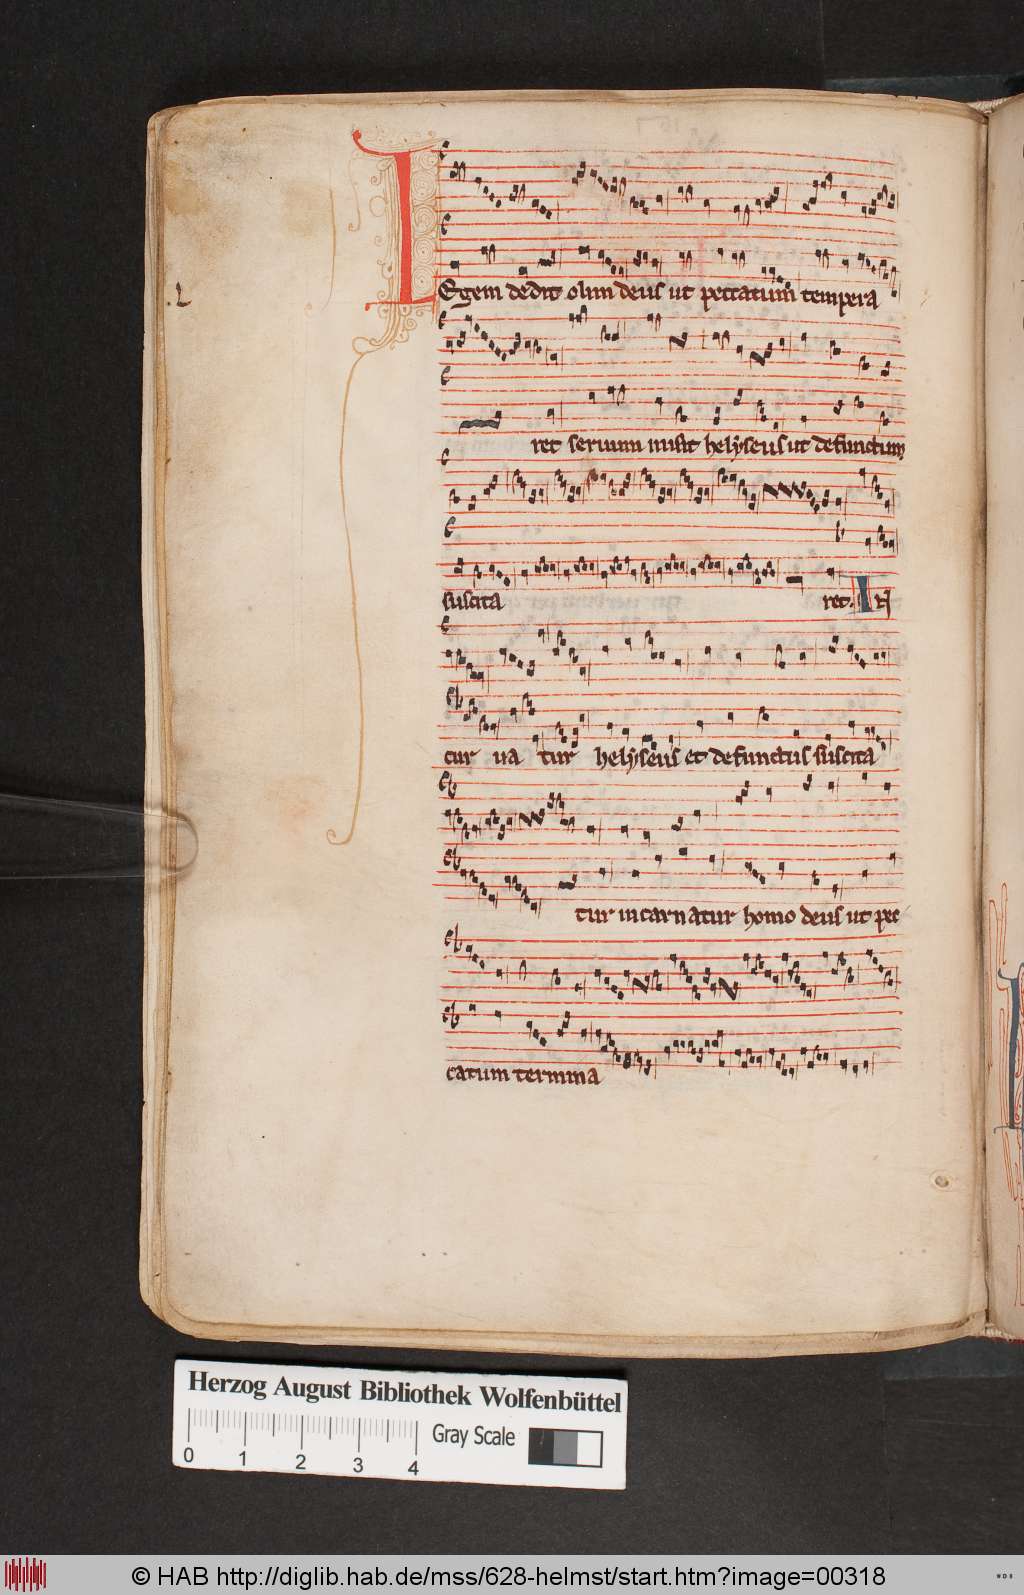 L
Egem dedit olim deus ut peccatum tempera
ret seruum misit helyseus ut defunctum
suscita ret. IN
cur ua tur helyseus et defunctus suscita
tur incarnatur homo deus ut pec
catum termina
Herzog August Bibliothek Wolfenbüttel
0 1 2 3 4 Gray Scale
© HAB http://diglib.hab.de/mss/628-helmst/start.htm?image=00318